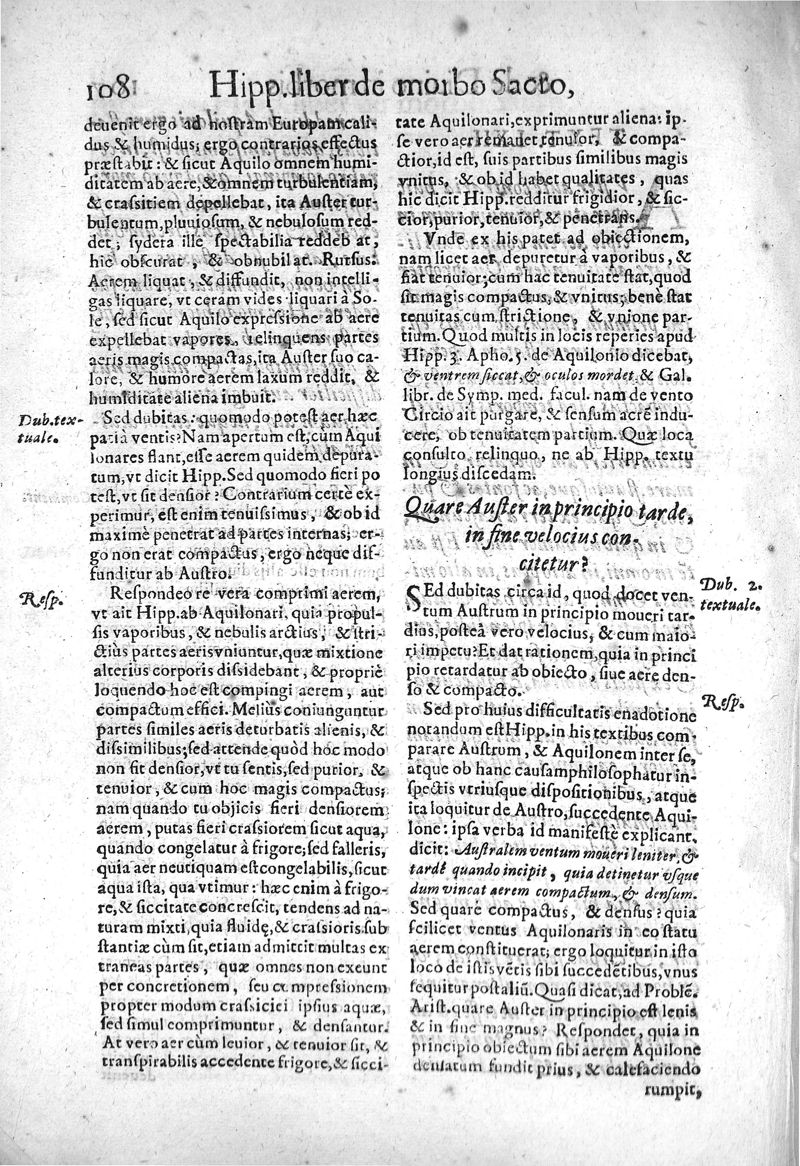 108 Hipp. liber de morbo Sacro,
deuenit ergo ad nostram Europam cali-
dus & humidus; ergo contrarios effectus
præstabit: & sicut Aquilo omnem humi-
ditatem ab aere, & omnem turbulentiam,
& crassitiem depellebat, ita Auster tur-
bulentum, pluuiosum, & nebulosum red-
det; sydera ille spectabilia reddebat,
hic obscurat, & obnubilat. Rursus:
Aerem liquat, & diffundit, non intelli-
gas liquare, vt ceram vides liquari à So-
le, sed sicut Aquilo expressione ab aere
expellebat vapores, relinquens partes
aeris magis compactas, ita Auster suo ca-
lore, & humore aerem laxum reddit, &
humiditate aliena imbuit.
Dub. tex-
tuale.
Sed dubitas: quomodo potest aer hæc
pati à ventis? Nam apertum est, cùm Aqui
lonares flant, esse aerem quidem depura-
tum, vt dicit Hipp. Sed quomodo fieri po
test, vt sit densior? Contrarium certè ex-
perimur, est enim tenuissimus, & ob id
maximè penetrat ad partes internas; er-
go non erat compactus, ergo neque dif-
funditur ab Austro.
Resp.
Respondeo re vera comprimi aerem,
vt ait Hipp. ab Aquilonari, quia propul-
sis vaporibus, & nebulis arctius, & stri-
ctiùs partes aeris vniuntur, quæ mixtione
alterius corporis dissidebant, & propriè
loquendo hoc est compingi aerem, aut
compactum effici. Meliùs coniunguntur
partes similes aeris deturbatis alienis, &
dissimilibus; sed attende quòd hoc modo
non fit densior, vt tu sentis, sed purior, &
tenuior, & cum hoc magis compactus;
nam quando tu objicis fieri densiorem
aerem, putas fieri crassiorem sicut aqua,
quando congelatur à frigore; sed falleris,
quia aer neutiquam est congelabilis, sicut
aqua ista, qua vtimur: hæc enim à frigo-
re, & siccitate concrescit, tendens ad na-
turam mixti, quia fluidę, & crassioris sub
stantiæ cùm sit, etiam admittit multas ex
traneas partes, quæ omnes non exeunt
per concretionem, seu compressionem
propter modum crassiciei ipsius aquæ,
sed simul comprimuntur, & densantur.
At vero aer cùm leuior, & tenuior sit, &
transpirabilis accedente frigore, & sicci-
tate Aquilonari, exprimuntur aliena: ip-
se vero aer remanet tenuior, & compa-
ctior, id est, suis partibus similibus magis
vnitus, & ob id habet qualitates, quas
hic dicit Hipp. redditur frigidior, & sic-
cior, purior, tenuior, & penetrans.
Vnde ex his patet ad obiectionem,
nam licet aer depuretur à vaporibus, &
fiat tenuior; cum hac tenuitate stat, quod
sit magis compactus, & vnitus; benè stat
tenuitas cum strictione, & vnione par-
tium. Quod multis in locis reperies apud
Hipp. 3. Apho. 5. de Aquilonio dicebat,
& ventrem siccat, & oculos mordet & Gal.
libr. de Symp. med. facul. nam de vento
Circio ait purgare, & sensum acrē indu-
cere, ob tenuitatem partium. Quæ loca
consulto relinquo, ne ab Hipp. textu
longius discedam.
Quare Auster in principio tarde,
in fine velocius con-
citetur?
Dub. 2.
textuale.
SEd dubitas circa id, quod docet ven-
tum Austrum in principio moueri tar-
diùs, posteà vero velocius, & cum maio-
ri impetu? Et dat rationem, quia in princi
pio retardatur ab obiecto, siue aere den-
so & compacto.
Resp.
Sed pro huius difficultatis enadotione
notandum est Hipp. in his textibus com-
parare Austrum, & Aquilonem inter se,
atque ob hanc causam philosophatur in-
spectis vtriusque dispositionibus, atque
ita loquitur de Austro, succedente Aqui-
lone: ipsa verba id manifestè explicant,
dicit: Australem ventum moueri leniter, &
tardè quando incipit, quia detinetur vsque
dum vincat aerem compactum, & densum.
Sed quarè compactus, & densus? quia
scilicet ventus Aquilonaris in eo statu
aerem constituerat; ergo loquitur in isto
loco de istis vētis sibi succedētibus, vnus
sequitur post aliū. Quasi dicat, ad Problē.
Arist. quare Auster in principio est lenis
& in fine magnus? Respondet, quia in
principio obiectum sibi aerem Aquilone
densatum fundit prius, & calefaciendo
rumpit,